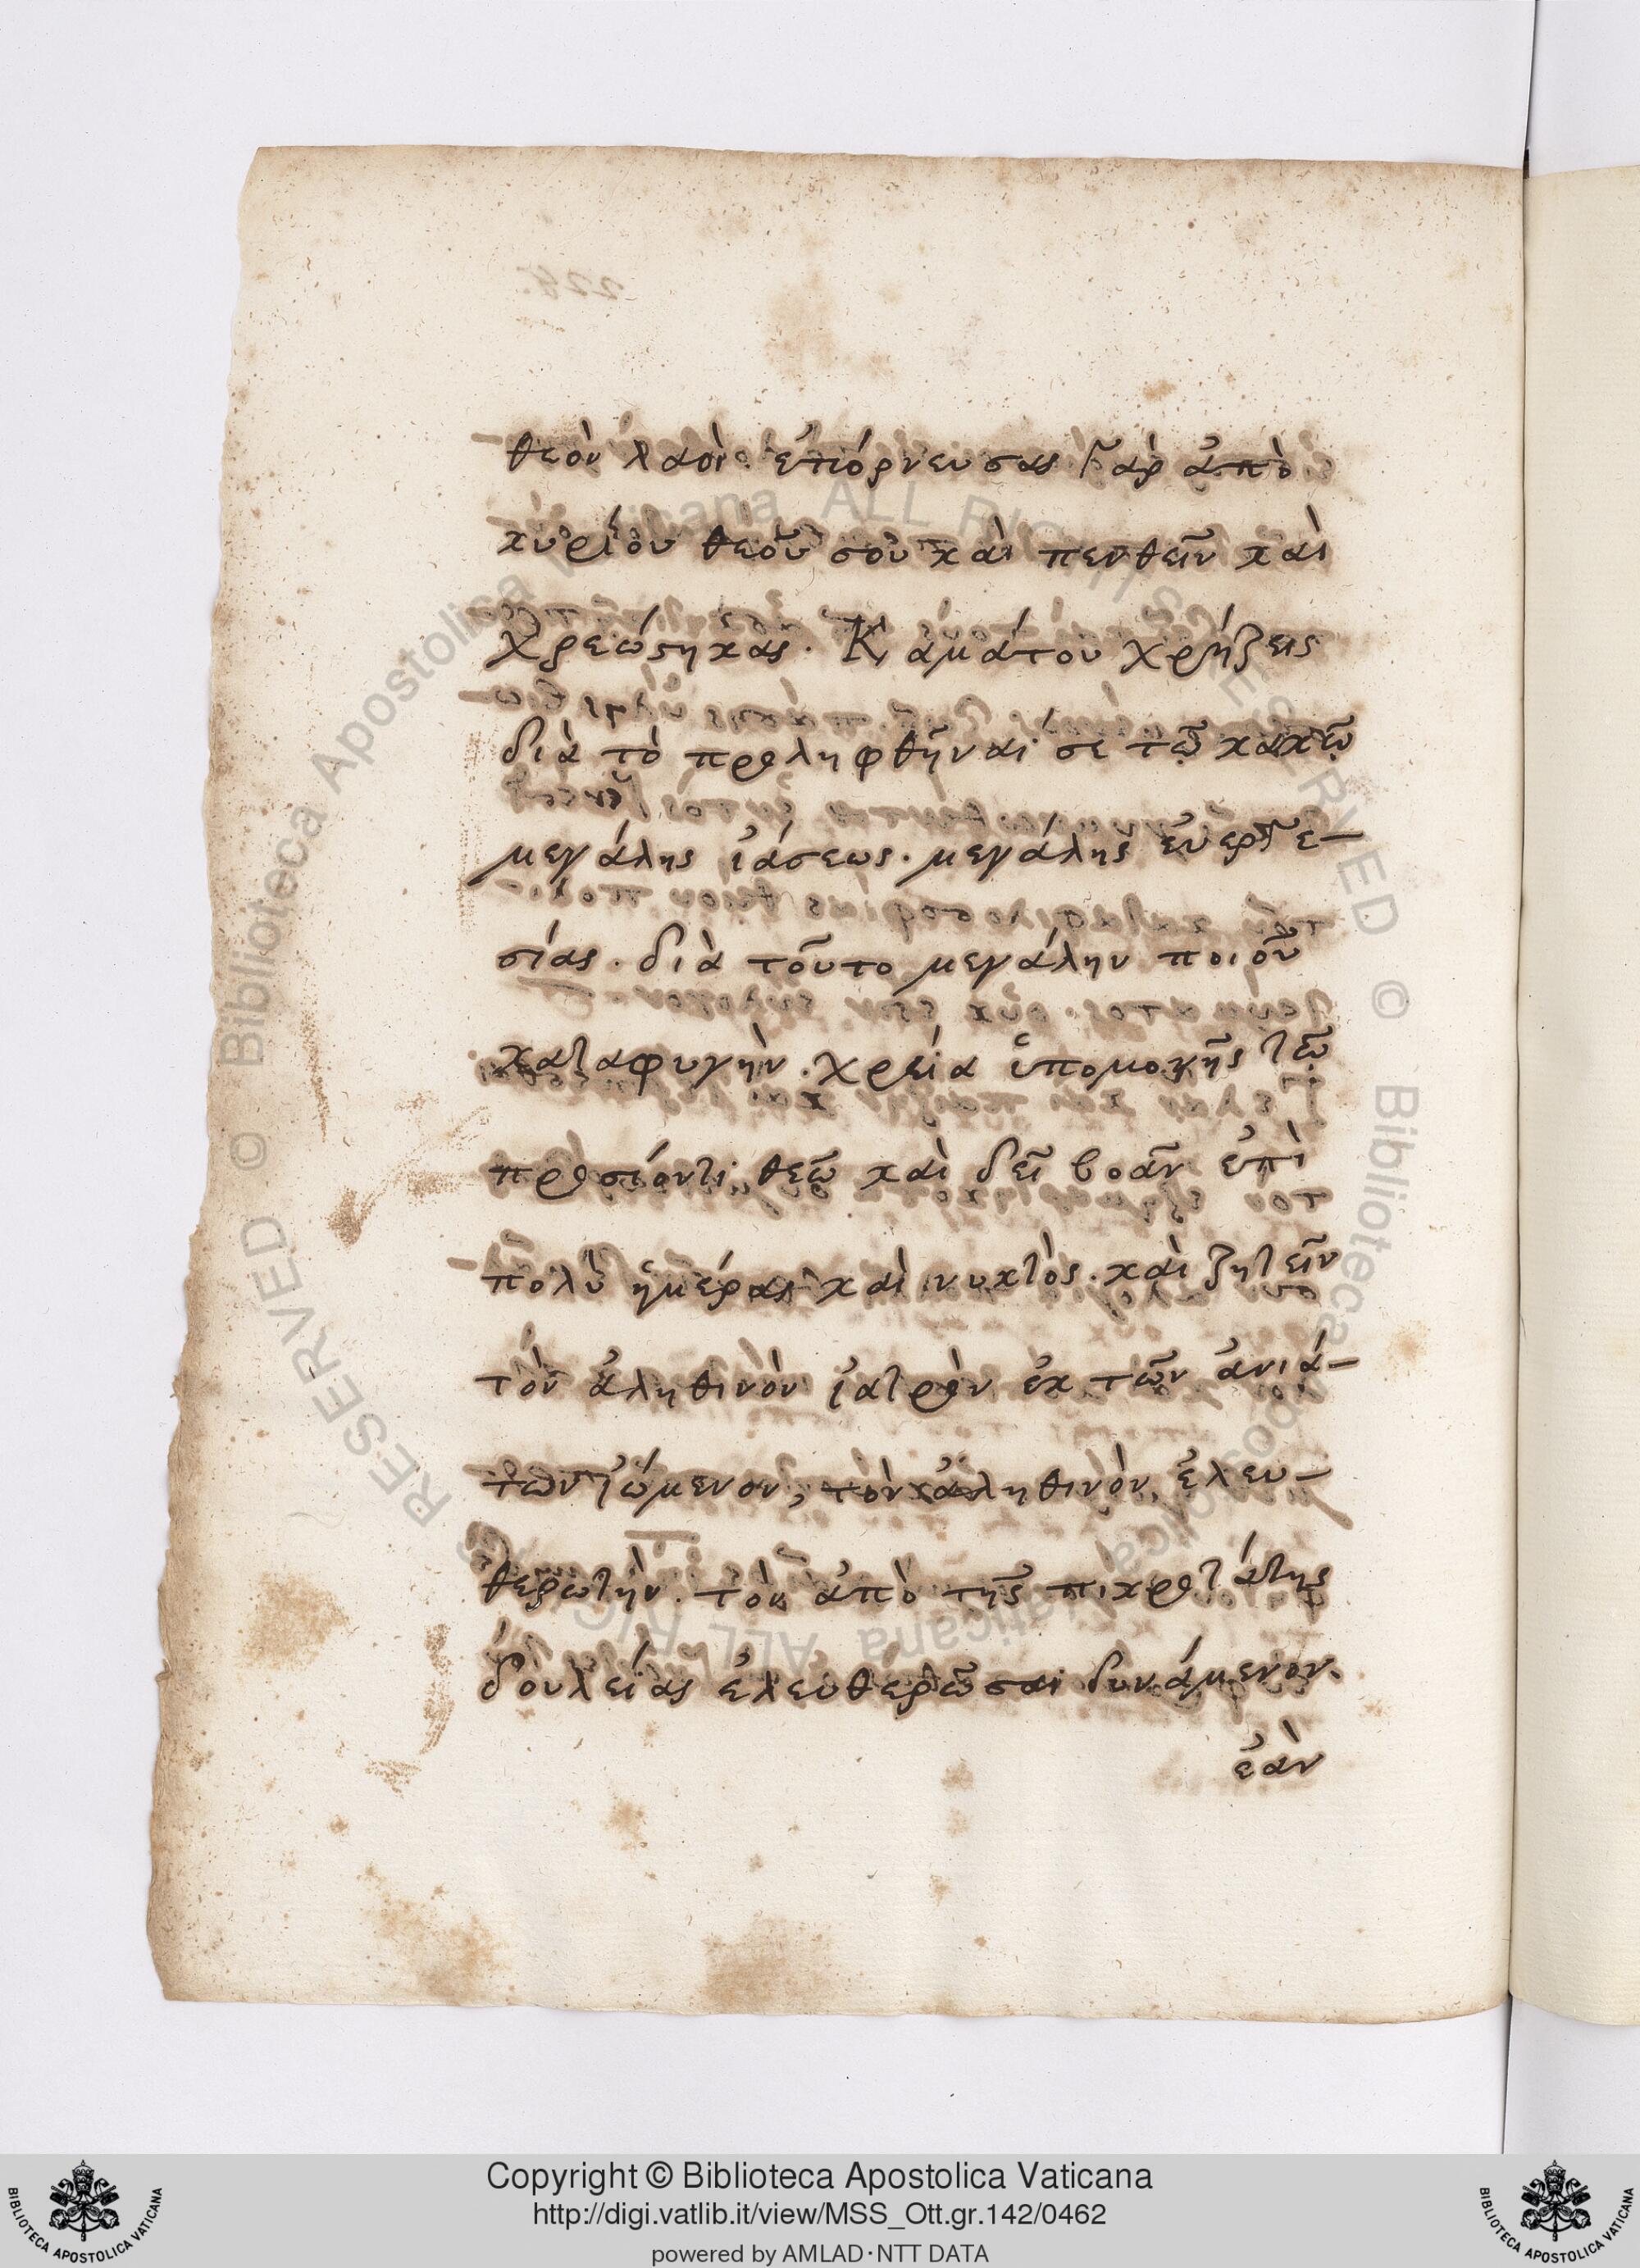 θεὸν λαοὶ. ἐπόρνευσας γὰρ ἀπὸ
κυρίου θεοῦ σου καὶ πενθεῖν καὶ
χρεώστηκας. Καμάτου χρήζεις
διὰ τὸ προληφθῆναι σε τῷ κακῷ
μεγάλης ἰάσεως. μεγάλης εὐεργε-
σίας. διὰ τοῦτο μεγάλην ποιοῦ
καταφυγὴν. χρεία ὑπομονῆς τῷ
προσιόντι θεῷ καὶ δεῖ βοᾶν ἐπὶ
πολὺ ἡμέρας καὶ νυκτὸς. καὶ ζητεῖν
τὸν ἀληθινὸν ἰατρὸν ἐκ τῶν ἀνιά-
των ἰώμενον, τὸν ἀληθινὸν ἐλευ-
θερωτὴν. τὸν ἀπὸ τῆς πικροτάτης
δουλείας ἐλευθερῶσαι δυνάμενον.
ἐὰν
Copyright © Biblioteca Apostolica Vaticana
http://digi.vatlib.it/view/MSS_Ott.gr.142/0462
powered by AMLAD·NTT DATA
BIBLIOTECA APOSTOLICA VATICANA
BIBLIOTECA APOSTOLICA VATICANA